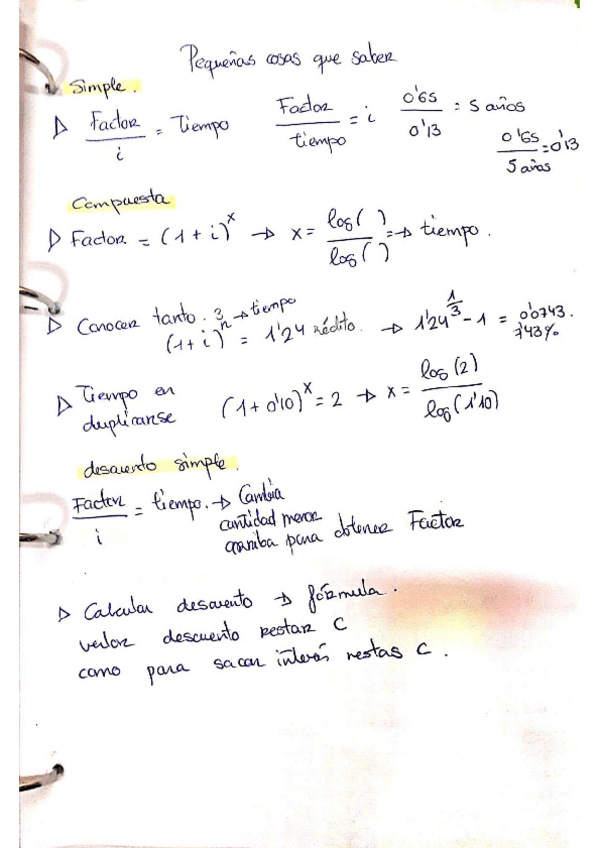 Pequeñas cosas que saber
Simple.
▷ Factor / i = Tiempo    Factor / tiempo = i    0'65 / 0'13 = 5 años
0'65 / 5 años = 0'13
Compuesta
▷ Factor = (1 + i)^x → x = log( ) / log( ) = → tiempo.
▷ Conocer tanto. 3 → tiempo
(1 + i)^n = 1'24 rédito. → 1'24^(1/3) - 1 = 0'0743.
7'43%
▷ Tiempo en
duplicarse    (1 + 0'10)^x = 2 → x = log(2) / log(1'10)
descuento simple.
Factor / i = tiempo. → Cambia
cantidad menor
arriba para obtener Factor
▷ Calcular descuento → fórmula.
valor descuento restar C
como para sacar interés restas C.